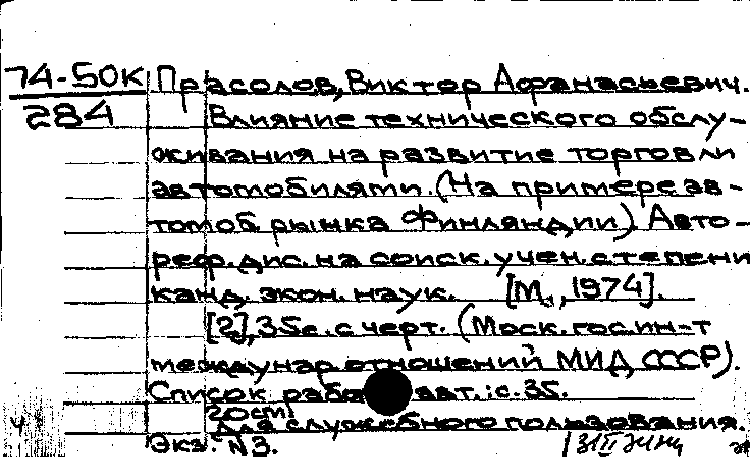 74-50К Прасолов, Виктор Афанасьевич.
284 Влияние технического обслу-
живания на развитие торговли
автомобилями. (На примере ав-
томоб. рынка Финляндии). Авто-
реф. дис. на соиск. учен. степени
канд. экон. наук. [М., 1974].
[2], 35 с. с черт. (Моск. гос. ин-т
междунар. отношений МИД СССР).
Список работ авт.: с. 35.
20 cm.
Для служебного пользования.
Экз. №3.